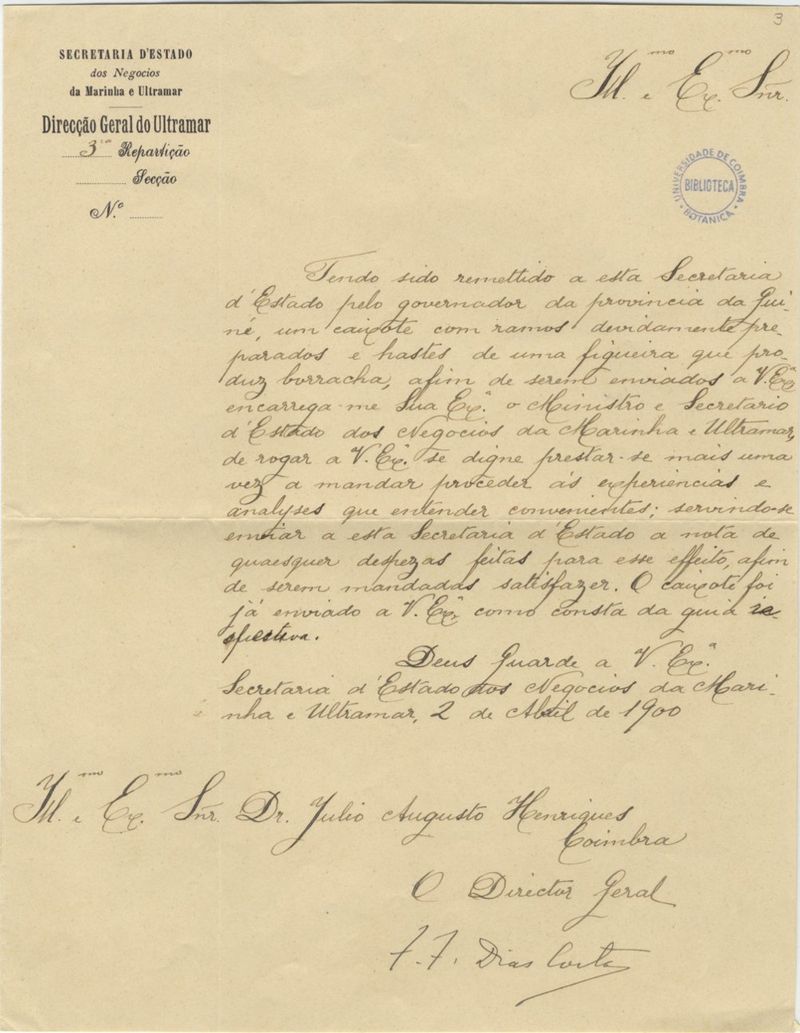 3
SECRETARIA D'ESTADO
dos Negocios
da Marinha e Ultramar
Direcção Geral do Ultramar
3ª Repartição
Secção
N.º
Ill.mo e Ex.mo Snr.
UNIVERSIDADE DE COIMBRA
BIBLIOTECA
BOTANICA
Tendo sido remettido a esta Secretaria
d'Estado pelo governador da provincia da Gui-
né, um caixote com ramos devidamente pre-
parados e hastes de uma figueira que pro-
duz borracha, afim de serem enviados a V. Exª
encarrega-me Sua Exª. o Ministro e Secretario
d'Estado dos Negocios da Marinha e Ultramar,
de rogar a V. Exª. se digne prestar-se mais uma
vez a mandar proceder ás experiencias e
analyses que entender convenientes; servindo-se
enviar a esta Secretaria d'Estado a nota de
quaesquer despezas feitas para esse effeito, afim
de serem mandadas satisfazer. O caixote foi
já enviado a V. Exª. como consta da guia re-
spectiva.
Deus Guarde a V. Exª.
Secretaria d'Estado dos Negocios da Mari-
nha e Ultramar, 2 de Abril de 1900
Ill.mo e Ex.mo Snr. Dr. Julio Augusto Henriques
Coimbra
O Director Geral
F. F. Dias Costa